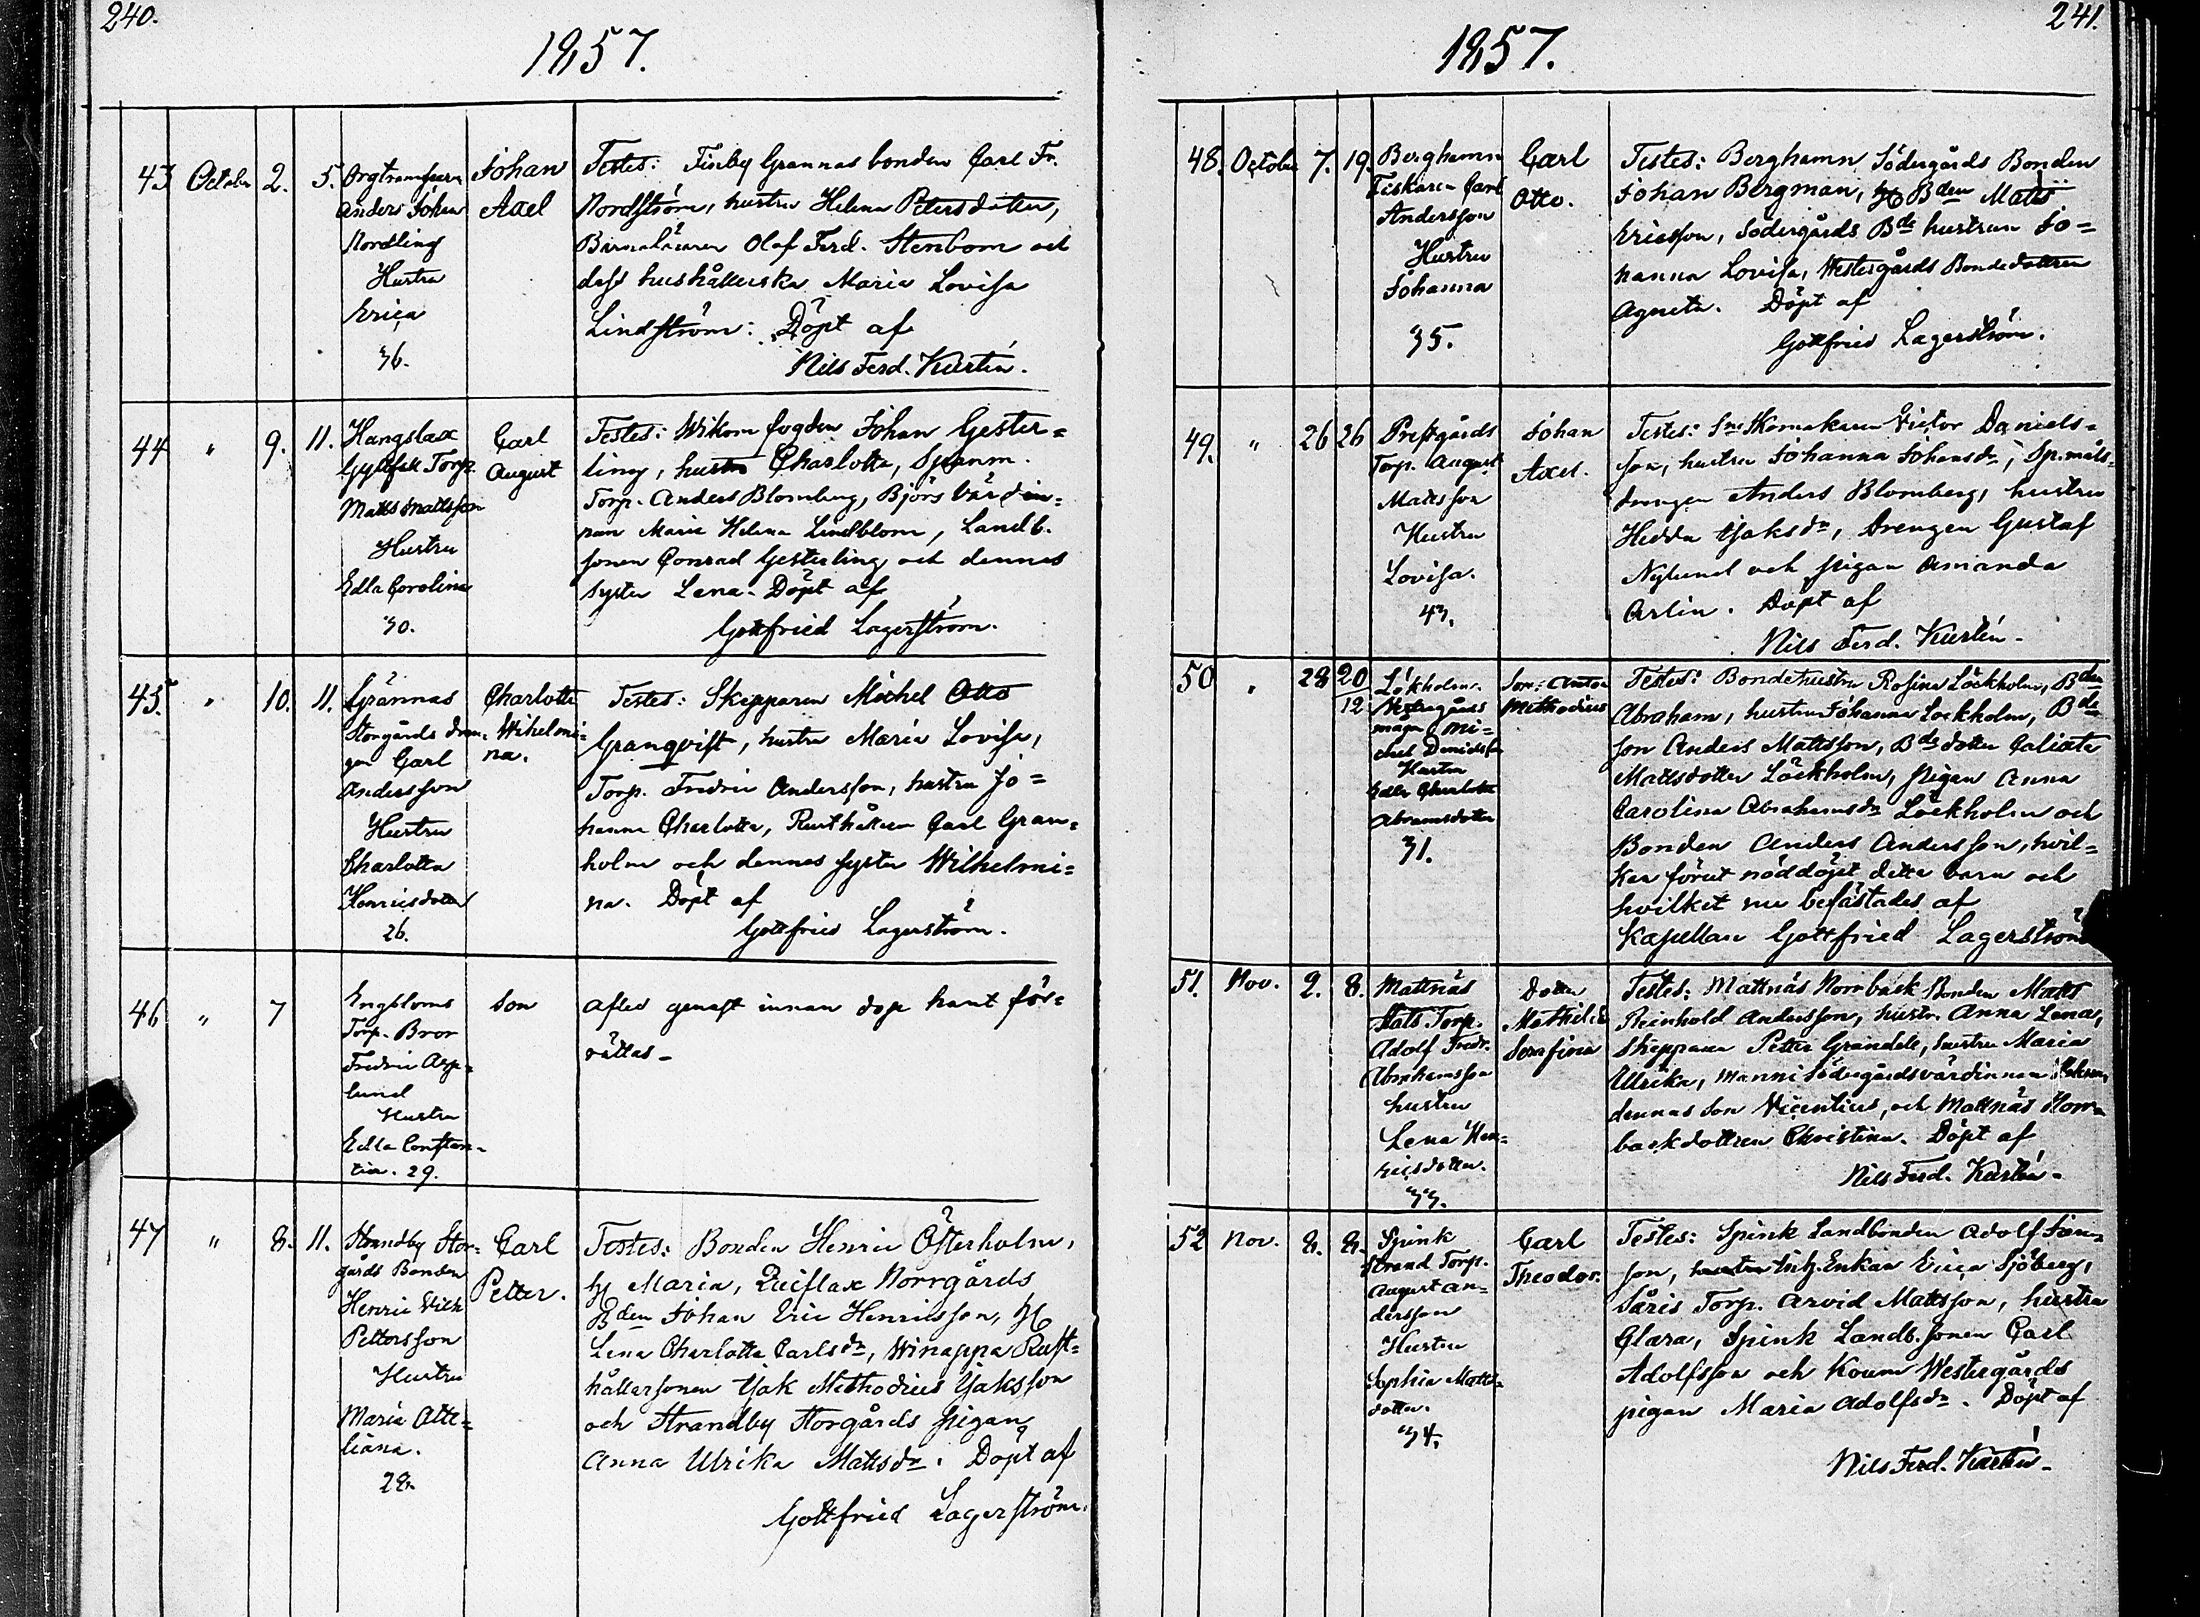 240.
1857.
43 October 2. 5. Johan Axel
Anders Johan
Nordling
Hustru
Erica
36.
Testes: Finby Grannas bonden Carl Fr.
Nordström, hustru Helena Petersdotter,
Olof Ferd. Stenbom och
dess hushållerska Maria Lovisa
Lindström: Döpt af
Nils Ferd. Kurtén.
44 " 9. 11. Carl August
Hangslax
Torp.
Matts Mattsson
Hustru
Edla Carolina
30.
Testes: Wikom fogden Johan Gester=
ling, hustru Charlotta, Spånm.
Torp. Anders Blomberg, Björs värdin=
nan Maria Helena Lindblom, Landb.
sonen Conrad Gesterling och dennes
syster Lena. Döpt af
Gottfried Lagerström.
45. " 10. 11. Charlotta Wilhelmi=
na.
Grännas
Storgårds dren=
gen Carl
Andersson
Hustru
Charlotta
Henricsdotter
26.
Testes: Skepparen Michel Otto
Granqvist, hustru Maria Lovisa,
Torp. Fredric Andersson, hustru Jo=
hanna Charlotta, Rusthållaren Carl Gran=
holm och dennes syster Wilhelmi=
na. Döpt af
Gottfried Lagerström.
46 " 7 Son
Engbloms
Torp. Bror
Fredric Asp=
lund
Hustru
Edla Constan=
tia. 29.
Afled genast innan dop hant för=
rättas_
47 " 8. 11. Carl Petter.
Strandby Stor=
gårds Bonden
Henric Wilh
Pettersson
Hustru
Maria Otte=
liana.
28.
Testes: Bonden Henric Österholm,
H Maria, Norrgårds
Bden Johan Eric Henricsson, H
Lena Charlotta Carlsdr, Winappa Rust=
hållarsonen Isak Methodius Isaksson
och Strandby Storgårds pigan
Anna Ulrika Mattsdr. Döpt af
Gottfried Lagerström.
241.
1857.
48. October 7. 19. Carl Otto.
Berghamn
Fiskaren Carl
Andersson
Hustru
Johanna
35.
Testes: Berghamn Södergårds Bonden
Johan Bergman, Bden Matts
Ericsson, Södergårds Bde hustrun Jo=
hanna Lovisa, Westergårds Bondedottren
Agneta. Döpt af
Gottfried Lagerström.
49. " 26 26 Johan Axel.
Prestgårds
Torp. August
Mattsson
Hustru
Lovisa.
43.
Testes: Skomakaren Victor Daniels=
son, hustru Johanna Johansdr, Sp.måls=
drengen Anders Blomberg, hustru
Hedda Isaksdr, Drengen Gustaf
Nylund och pigan Amanda
Arlin. Döpt af
Nils Ferd. Kurtén.
50 " 28 20/12 Son: Anton
Methodius
Löckholm
Westergårds
mågen Mi=
chel Davidsson
Hustru
Edla Charlotta
Abramsdotter
31.
Testes: Bondehustru Rosina Löckholm, Bden
Abraham, hustrun Johanna Löckholm, Bde
son Anders Mattsson, Bdedotter
Mattsdotter Löckholm, pigan Anna
Carolina Abrahamsdr Löckholm och
Bonden Anders Andersson, hvil=
ken förut nöddöpt detta barn och
hvilket nu befästades af
Kapellan Gottfried Lagerström
51. Nov. 2. 8. Dotter
Mathilda
Serafina
Mattnäs
Torp.
Adolf Fredr.
Abrahamsson
hustru
Lena Hen=
ricsdotter.
33.
Testes: Mattnäs Norrback Bonden Matts
Reinhold Andersson, hustr. Anna Lena,
Skepparen Petter Grandell, hustru Maria
Ulrika, Manni Södergårdsvärdinnan
dennas son Vicentius, och Mattnäs Norr=
backdottren Christina. Döpt af
Nils Ferd. Kurtén.
52 Nov. 8. 8. Carl
Theodor.
Spink
Strand Torp.
August An=
dersson
Hustru
Sophia Matts=
dotter.
34.
Testes: Spink Landbonden Adolf Sim=
son, Enkan Erica Sjöberg,
Torp. Arvid Mattsson, hustru
Clara, Spink Landb.sonen Carl
Adolfsson och Koum Westergårds
pigan Maria Adolfsdr. Döpt af
Nils Ferd. Kurtén.